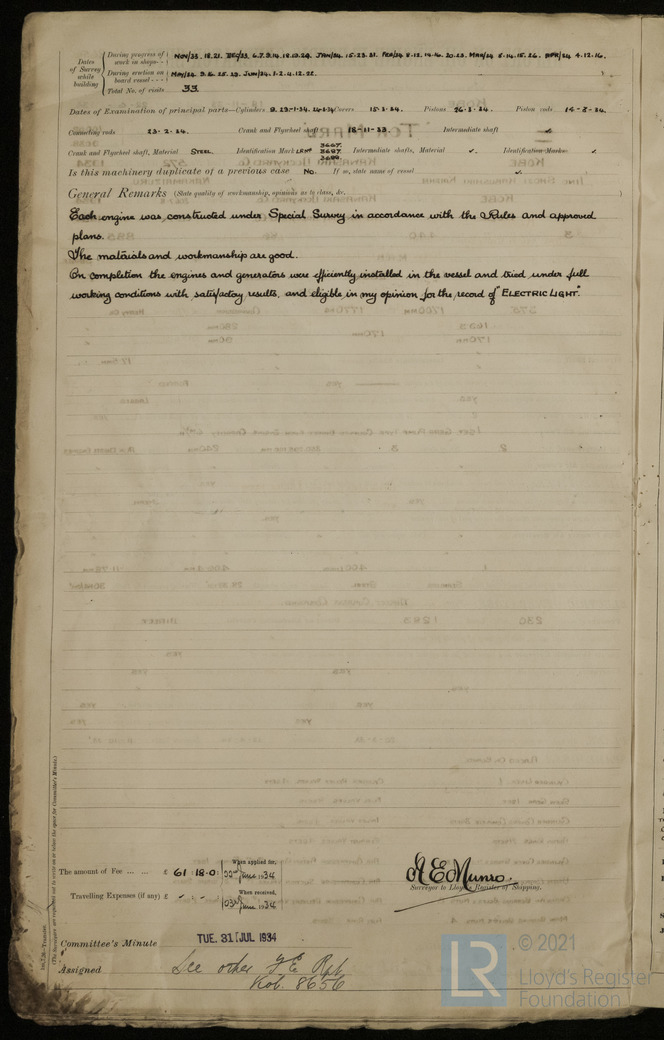 Dates of Survey while building
During progress of work in shops - - NOV/33. 18.21. DEC/33. 6.7.9.14.18.19.29. JAN/34. 15.23.31. FEB/34 8.12.14.16.20.23. MAR/34 5.14.15.26. APR/34 4.12.16.
During erection on board vessel - - - MAY/34. 9.15.25.29. JUN/34. 1.2.4.12.22.
Total No. of visits 33
Dates of Examination of principal parts—Cylinders 8.23-1-34. Covers 15-3-34. Pistons 26-3-34. Piston rods 14-3-34.
Connecting rods 23-2-34. Crank and Flywheel shaft 18-11-33. Intermediate shaft
Crank and Flywheel shaft, Material STEEL. Identification Mark LR Nº 3667. 3687. 3688. Intermediate shafts, Material ✓. Identification Mark ✓.
Is this machinery duplicate of a previous case No. If so, state name of vessel
General Remarks (State quality of workmanship, opinions as to class, &c.
Each engine was constructed under Special Survey in accordance with the Rules and approved
plans.
The materials and workmanship are good.
On completion the engines and generators were efficiently installed in the vessel and tried under full
working conditions with satisfactory results, and eligible in my opinion for the record of "ELECTRIC LIGHT".
The amount of Fee ... ... £ 61 : 18.0 : When applied for, 22nd June 1934
Travelling Expenses (if any) £ When received, June 1934
A E Munro.
Surveyor to Lloyd's Register of Shipping.
Committee's Minute TUE. 31 JUL 1934
Assigned See other F.E. Rpt
Kob. 8656
(The Surveyors are requested not to write on or below the space for Committee's Minute.)
© 2021
LR Lloyd's Register
Foundation